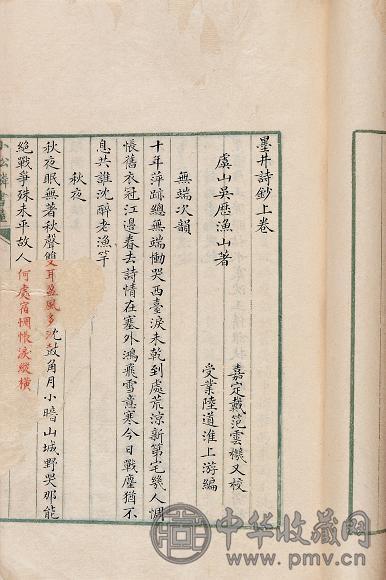 墨井詩鈔上卷
虞山吳歷漁山著
嘉定戴范雲檖又校
受業陸道淮上游編
無端次韻
十年萍跡總無端慟哭西臺淚未乾到處荒涼新第宅幾人惆
悵舊衣冠江邊春去詩情在塞外鴻飛雪意寒今日戰塵猶不
息共誰沈醉老漁竿
秋夜
秋夜眠無著秋聲雙耳盈風多沈鼓角月小暗山城野哭那能
絕戰爭殊未平故人何處宿惆悵淚縱橫
中华收藏网
www.pmv.cn